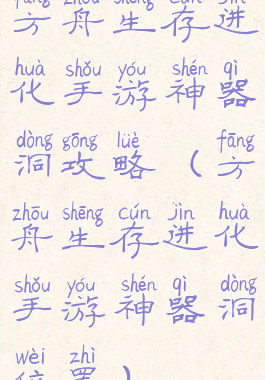 fāng zhōu shēng cún jìn
方舟生存进
huà shǒu yóu shén qì
化手游神器
dòng gōng lüè fāng
洞攻略（方
zhōu shēng cún jìn huà
舟生存进化
shǒu yóu shén qì dòng
手游神器洞
wèi zhì
位置）